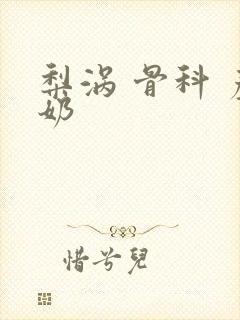 梨涡 骨科
奶
惜兮兒